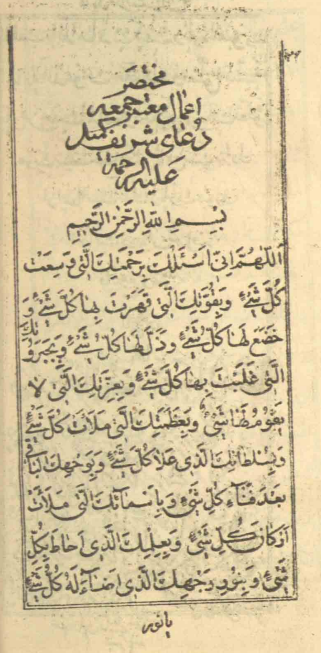 مختصر
اعمال معتبر جمعه
دعای شریف کمیل
علیه الرحمة
بسم الله الرحمن الرحیم
اللهم انی اسئلک برحمتک التی وسعت
کل شئ وبقوتک التی قهرت بها کل شئ و
خضع لها کل شئ وذل لها کل شئ وبجبروتک
التی غلبت بها کل شئ وبعزتک التی لا
یقوم لها شئ وبعظمتک التی ملأت کل شئ
وبسلطانک الذی علا کل شئ وبوجهک الباقی
بعد فناء کل شئ وباسمائک التی ملأت
ارکان کل شئ وبعلمک الذی احاط بکل
شئ وبنور وجهک الذی اضاء له کل شئ
یانور